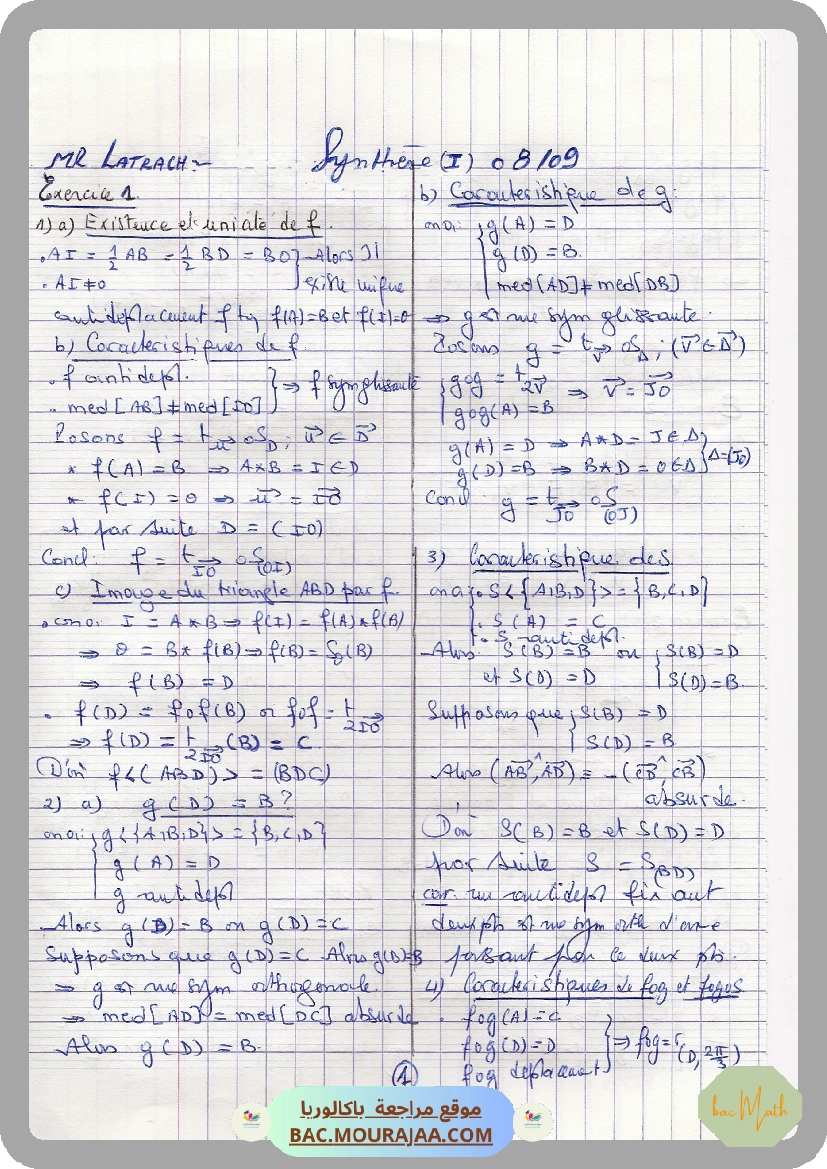 MR LATRACH~ Synthèse (I) 08/09
Exercice 1.
1) a) Existence et uniaté de f.
. AI = 1/2 AB = 1/2 BD = BO } Alors ∃!
. AI ≠ 0 existe unique
antidéplacement f tq f(A)=B et f(I)=O
b) Caractéristiques de f.
. f antidepl.
. med[AB] ≠ med[IO] } ⇒ f sym glissante
Posons f = t_u⃗ o S_D ; u⃗ ∈ D⃗
* f(A) = B ⇒ A*B = I ∈ D
* f(I) = O ⇒ u⃗ = IO⃗
et par suite D = (IO)
Concl: f = t_IO⃗ o S_(OI)
c) Image du triangle ABD par f.
. on a: I = A*B ⇒ f(I) = f(A)*f(B)
⇒ O = B* f(B) ⇒ f(B) = S_O(B)
⇒ f(B) = D
. f(D) = fof(B) or fof = t_2IO⃗
⇒ f(D) = t_2IO⃗ (B) = C
D'où f<(ABD)> = (BDC)
2) a) g(D) = B?
on a: { g<{A,B,D}> = {B,C,D}
g(A) = D
g antidepl
Alors g(D) = B ou g(D) = C
Supposons que g(D)=C Alors g(D)=B
⇒ g est une sym orthogonale.
⇒ med[AD] = med[DC] absurde
Alors g(D) = B.
b) Caracteristique de g:
on a: { g(A) = D
g(D) = B.
med[AD] ≠ med[DB]
⇒ g est une sym glissante.
Posons g = t_V⃗ o S_Δ ; (V⃗ ∈ Δ⃗)
{ gog = t_2V⃗ ⇒ V⃗ = JO⃗
gog(A) = B
g(A) = D ⇒ A*D = J ∈ Δ
g(D) = B ⇒ B*D = O ∈ Δ } Δ = (JO)
Concl g = t_JO⃗ o S_(OJ)
3) Caracteristique de S.
on a { . S<{A,B,D}> = {B,C,D}
. S(A) = C
. S antidepl.
Alors S(B) = B ou { S(B) = D
et S(D) = D S(D) = B.
Supposons que { S(B) = D
S(D) = B
Alors (AB⃗,^AD⃗) ≡ -(CB⃗,^CB⃗)
absurde.
D'où S(B) = B et S(D) = D
par suite S = S_(BD)
car un antidepl fixant
deux pts est une sym orth d'axe
passant par ce deux pts.
4) Caractéristiques de fog et fogoS
. fog(A) = C
fog(D) = D
fog deplacement } ⇒ fog = r(D, 2π/3)
1
موقع مراجعة باكالوريا
BAC.MOURAJAA.COM
bac Math